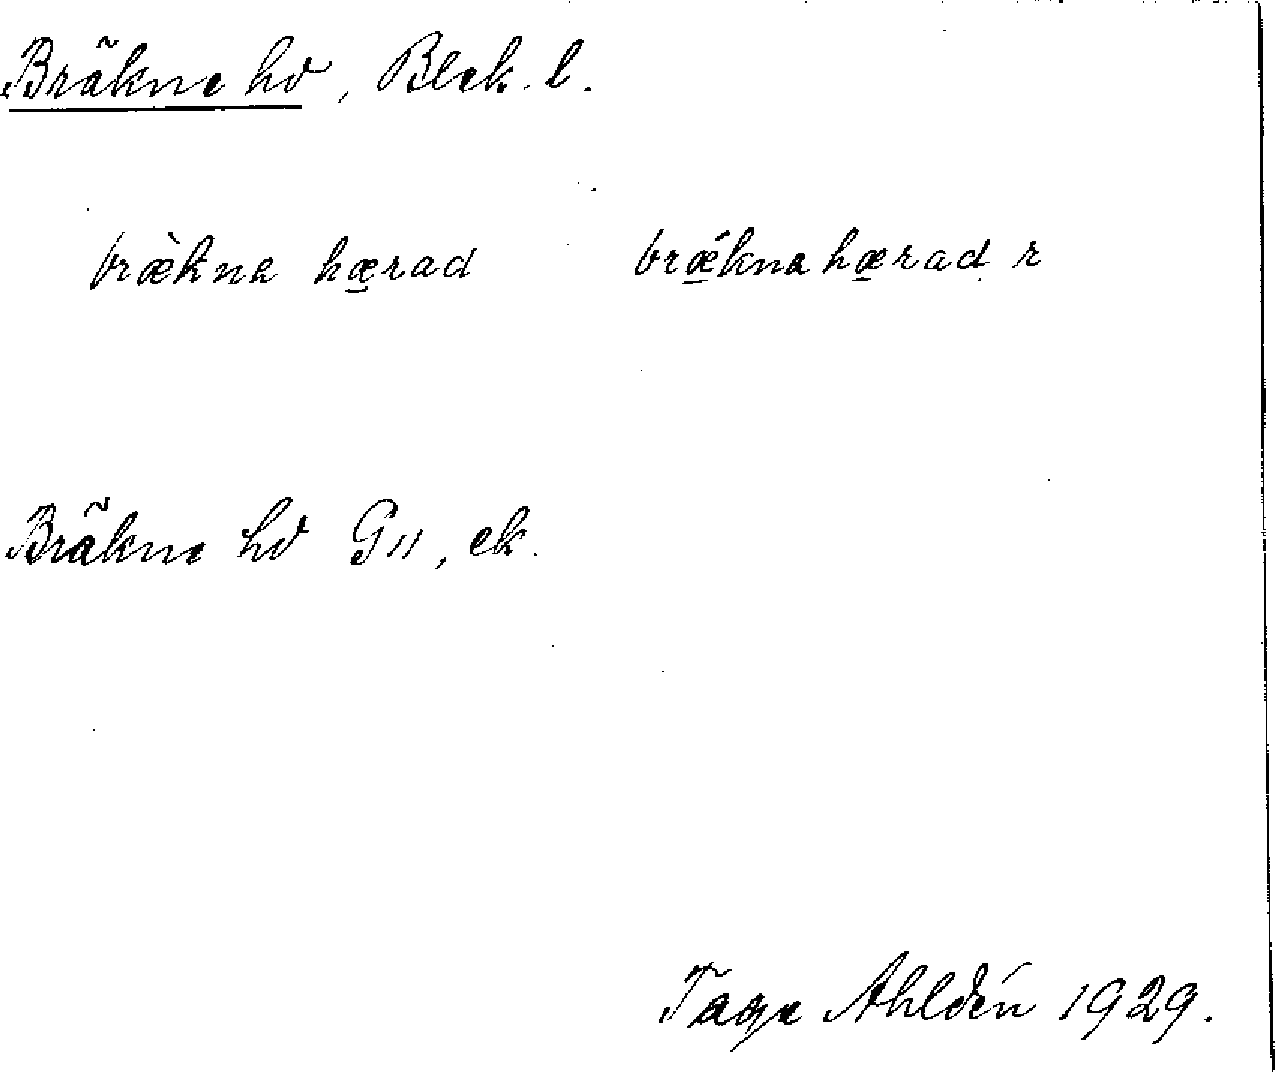 Bräkne hd, Blek. l.
bræ̀kna hæ̱rad   brǽ̱knahæ̱rad r
Bräkne hd G11, ek.
Tage Ahldén 1929.